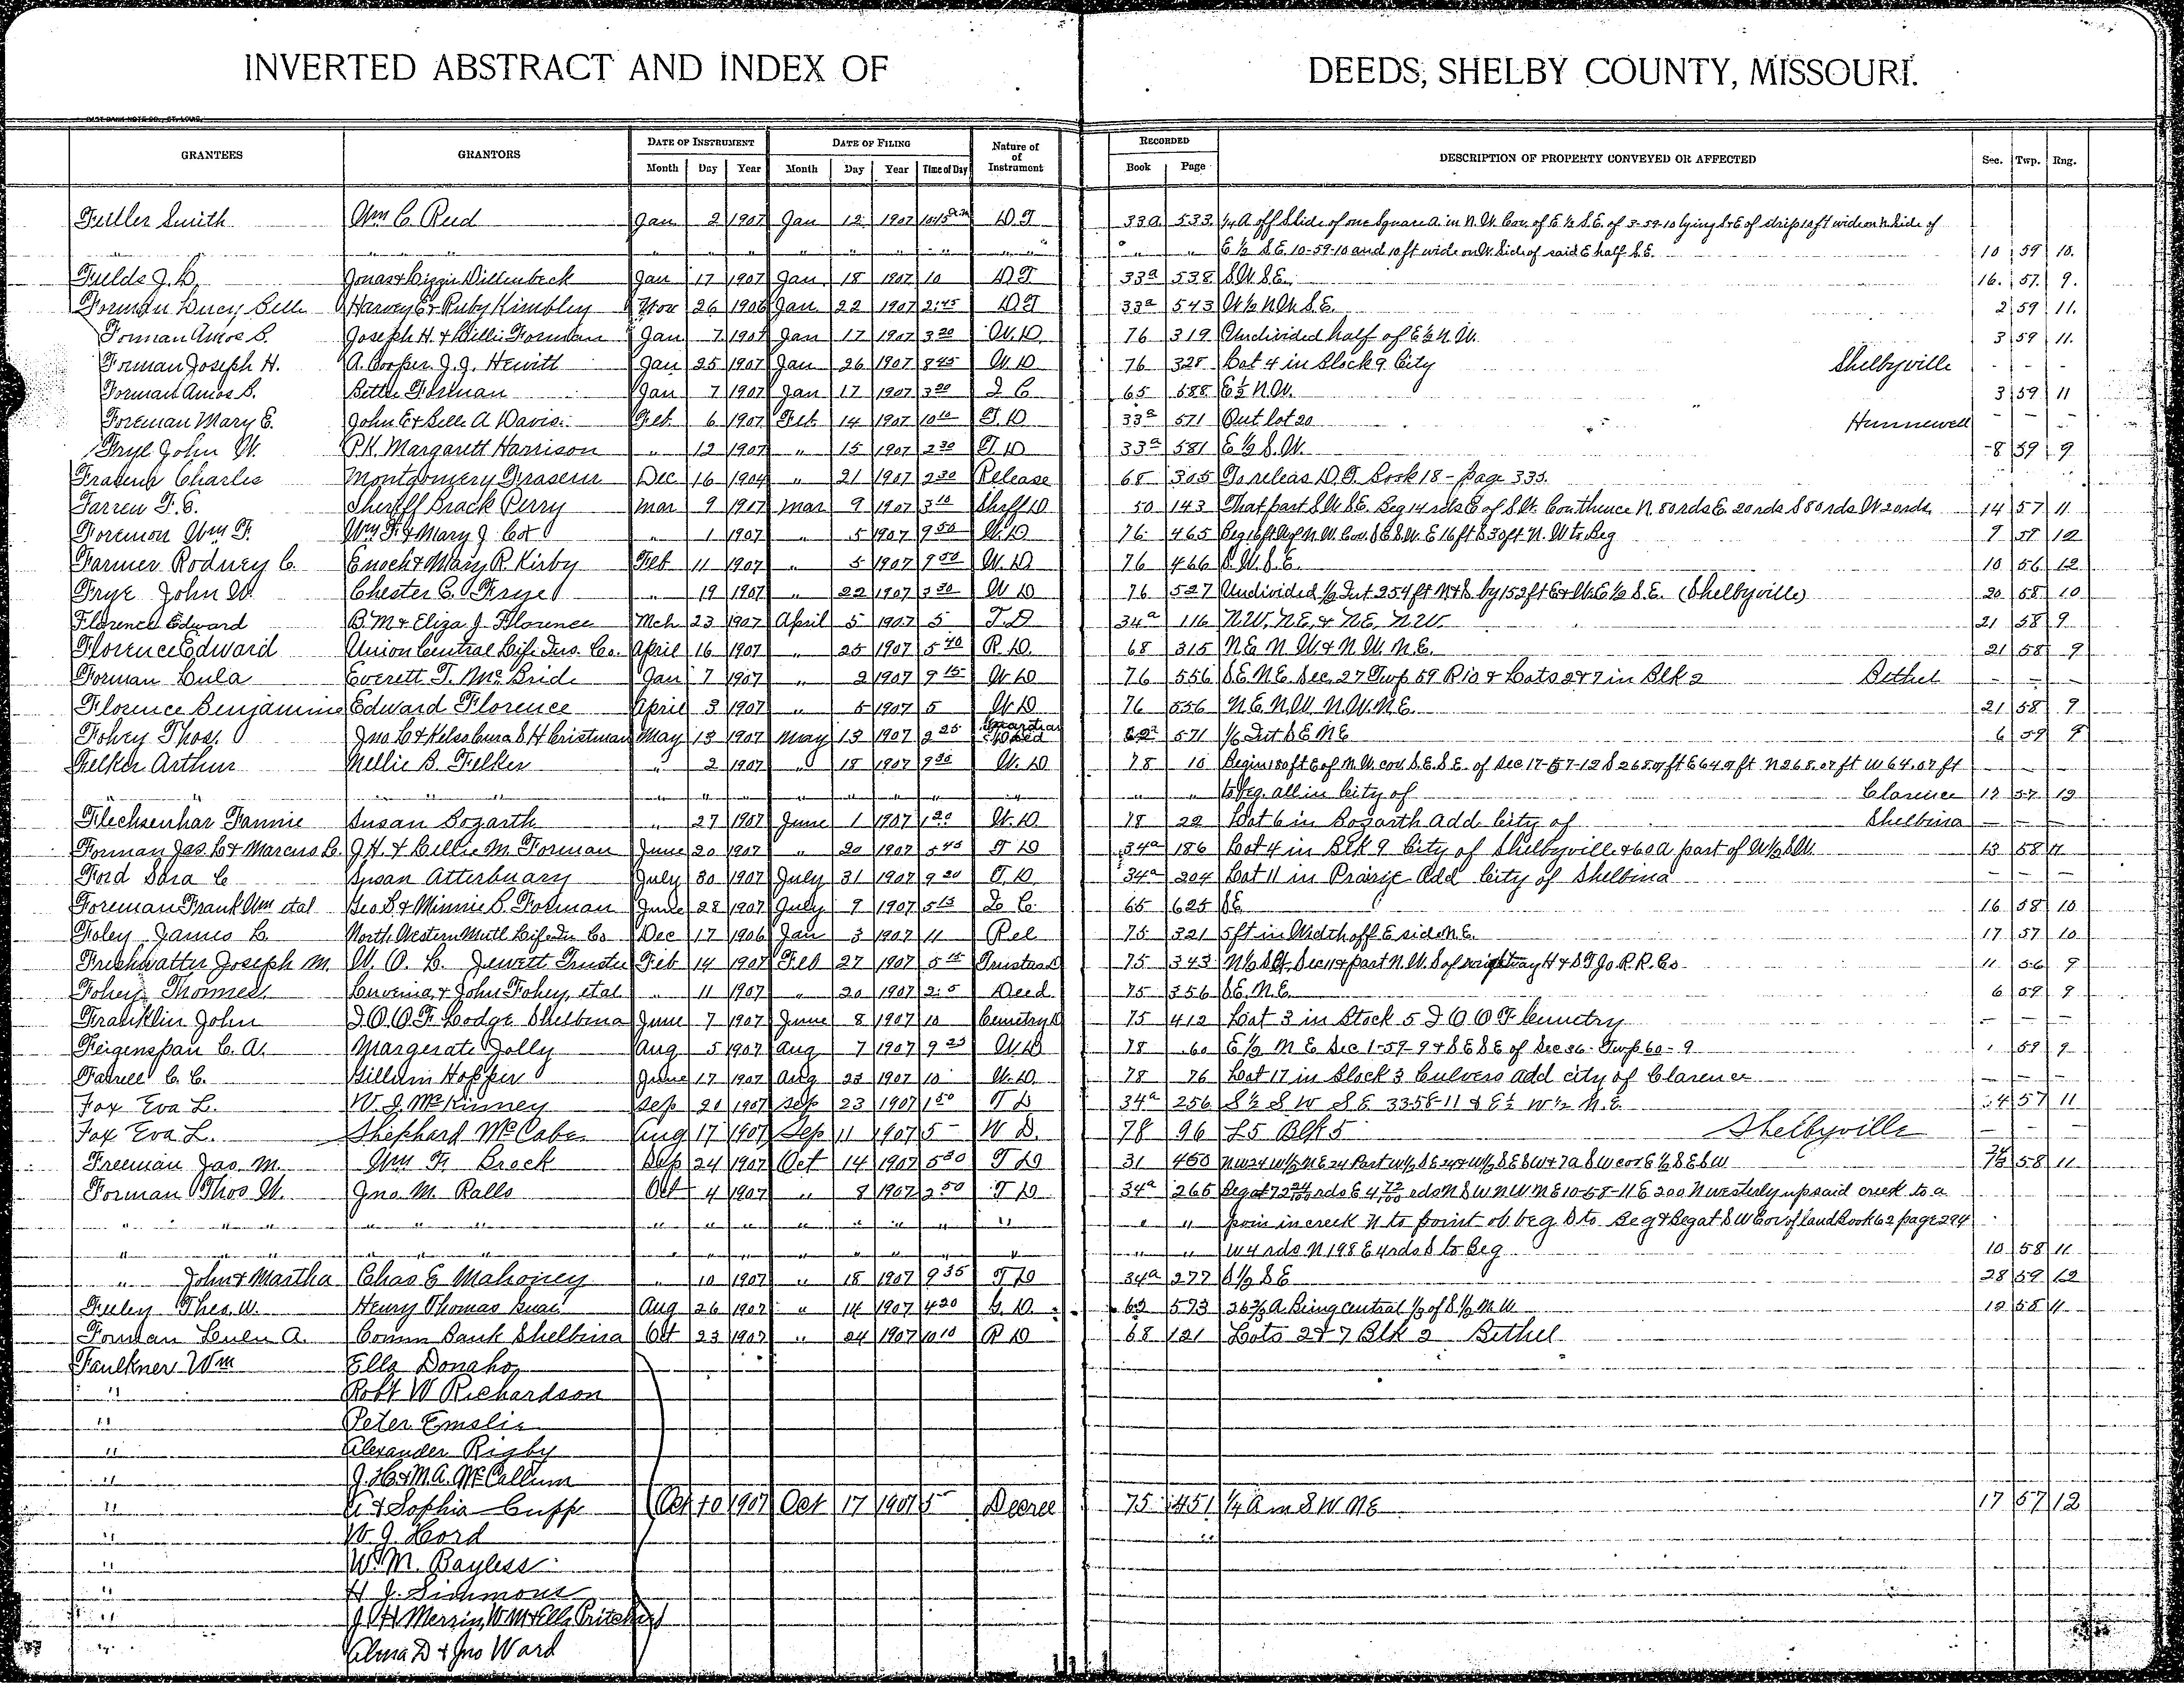 INVERTED ABSTRACT AND INDEX OF DEEDS, SHELBY COUNTY, MISSOURI.
GRANTEES GRANTORS DATE OF INSTRUMENT DATE OF FILING Nature of of Instrument RECORDED DESCRIPTION OF PROPERTY CONVEYED OR AFFECTED Sec. Twp. Rng.
Month Day Year Month Day Year Time of Day Book Page
Fuller Smith Wm C. Reed Jan 2 1907 Jan 12 1907 D T 33a 533 ¼ A off S side of one Square a. in N.W. Cor. of E ½ S.E. of 3-59-10 lying S & E of strip 10 ft wide on N. Side of
" " " E ½ S.E. 10-59-10 and 10 ft wide on W. Side of said E half S.E. 10 59 10.
Fields J. D. Jonas & Lizzie Dillenbeck Jan 17 1907 Jan 18 1907 10 D T 33a 538 S.W. S.E. 16. 57. 9.
Forman Lucy Belle Harvey E & Ruby Kimbley Nov 26 1906 Jan 22 1907 2:45 D T 33a 543 W ½ N.W. S.E. 2 59 11.
Forman Amos S. Joseph H. & Lillie Forman Jan 7 1907 Jan 17 1907 3 20 W. D. 76 319 Undivided half of E ½ N.W. 3 59 11.
Forman Joseph H. A. Cooper J. J. Hewitt Jan 25 1907 Jan 26 1907 8 45 W. D 76 328 Lot 4 in Block 9 City Shelbyville - - -
Forman Amos S. Bettie Forman Jan 7 1907 Jan 17 1907 3 20 2 C 65 588 E ½ N.W. 3 59 11
Foreman Mary E. John E & Belle A Davis Feb 6 1907 Feb 14 1907 10 10 T. D 33a 571 Out lot 20 Hunnewell - - -
Frye John W. P.K. Margarett Harrison " 12 1907 " 15 1907 2 30 T. D 33a 581 E ½ S.W. 8 59 9
Charles Montgomery Dec 16 1904 " 21 1907 2 30 Release 68 305 To releas D.T. Book 18 - Page 335.
Farrell F. E. Sheriff Brack Perry Mar 9 1907 Mar 9 1907 3 10 Shff D 50 143 That part S.W. S.E. Beg 14 rds E of S.W. Cor thence N. 80 rds E. 20 rds S 80 rds W 20 rds 14 57 11
Foremon Wm F. Wm F. & Mary J. Cox " 1 1907 " 5 1907 9 50 W. D 76 465 Beg 16 ft W of N.W. Cor. S.E. S.W. E 16 ft S 30 ft N. W to Beg 9 58 12
Farmer Rodney C. Enoch & Mary R. Kirby Feb 11 1907 " 5 1907 9 50 W. D. 76 466 S.W. S.E. 10 56 12
Frye John W. Chester C. Frye " 19 1907 " 22 1907 3 30 W D 76 527 Undivided ½ Int 254 ft N & S by 152 ft E & W. E ½ S.E. (Shelbyville) 20 58 10
Florence Edward B. M & Eliza J. Florence Mch 23 1907 April 5 1907 5 T. D 34a 116 N.W., N.E., & N.E., N.W. 21 58 9
Florence Edward Union Central Life Ins. Co. April 16 1907 " 25 1907 5 40 R. D. 68 315 N.E. N.W. & N.W. N.E. 21 58 9
Forman Lula Everett T. McBride Jan 7 1907 " 2 1907 9 15 W. D 76 556 S.E. N.E. Sec. 27 Twp. 59 R 10 & Lots 2 & 7 in Blk 2 Bethel - - -
Florence Benjamine Edward Florence April 3 1907 " 5 1907 5 W. D 76 556 N.E. N.W. N.W. N.E. 21 58 9
Fohey Thos. Jno C & Kelso Cura S H Cristman May 13 1907 May 13 1907 2 25 Guardian Deed 62a 571 1/6 Int S E N E 6 59 9
Felker Arthur Nellie B. Felker " 2 1907 " 18 1907 9 30 W. D 78 10 Begin 180 ft E of N.W. cor. S.E. S.E. of Sec 17-57-12 S 268.07 ft E 64.07 ft N 268.07 ft W 64.07 ft
" " " to beg. all in City of Clarence 17 57 12
Flechsenhar Fannie Susan Bozarth " 27 1907 June 1 1907 1 20 W. D. 78 22 Lot 6 in Bozarth Add City of Shelbina - - -
Forman Jas. C & Marcus C. J. H. & Lillie M. Forman June 20 1907 " 20 1907 5 45 T D 34a 186 Lot 4 in Blk 9 City of Shelbyville & 60 a part of W ½ S.W. 13 58 11
Ford Sara C Susan Atterbuary July 30 1907 July 31 1907 9 20 T. D. 34a 204 Lot 11 in Prairie Add City of Shelbina - - -
Foreman Frank Wm etal Geo B & Minnie B. Forman June 28 1907 July 9 1907 5 15 2 C. 65 625 S.E. 16 58 10
Foley James L North Western Mutl Life Ins Co Dec 17 1906 Jan 3 1907 11 Rel 75 321 5 ft in Width off E side N.E. 17 57 10
Freshwatter Joseph M. W. O. L. Jewett Trustee Feb 14 1907 Feb 27 1907 5 15 Trustees D 75 343 N ½ Sec 11 & part N.W. S of right way H & St Jo. R.R. Co 11 56 9
Fohey Thomas Luvenia & John Fohey, etal " 11 1907 " 20 1907 2:5 Deed 75 356 S.E. N.E. 6 59 9
Franklin John I.O.O.F. Lodge Shelbina June 7 1907 June 8 1907 10 Cemetry D 75 412 Lot 3 in Block 5 I O O F Cemetry - - -
Feigenspan C. A. Margerate Jolly Aug 5 1907 Aug 7 1907 9 25 W. D 78 60 E ½ N E Sec 1-59-9 & S E S E of Sec 36 - Twp 60 - 9 1 59 9
Farrell C. C. Gillum Hopper June 17 1907 Aug 23 1907 10 W. D. 78 76 Lot 17 in Block 3 Culvers add city of Clarence - - -
Fox Eva L. W. J. McKinney Sep 21 1907 Sep 23 1907 1 50 T D 34a 256 S ½ S W S E 33-58-11 & E ½ W ½ N.E. 34 57 11
Fox Eva L. Shephard McCabe Aug 17 1907 Sep 11 1907 5 - W D. 78 96 L 5 Blk 5 Shelbyville - - -
Freeman Jas. M. Wm F. Brock Sep 24 1907 Oct 14 1907 5 30 T D 31 450 N W 24 W ½ N E 24 Part W ½ S E 24 & W ½ S E S W & 7 a S W cor E ½ S E S W 58 11
Forman Thos W. Jno. M. Ralls Oct 4 1907 " 8 1907 2 50 T D 34a 265 Beg at 72 24/100 rds E 4 72/100 rds N S W N W N E 10-58-11 E 200 N westerly up said creek to a
" " " poin in creek N to point ob beg S to Beg & Beg at S W Cor of land Book 62 page 294
" " " W 4 rds N 198 E 4 rds S to Beg 10 58 11
" John & Martha Chas E Mahoney " 10 1907 " 18 1907 9 35 T D 34a 277 S ½ S E 28 59 12
Thos. W. Henry Thomas Aug 26 1907 " 14 1907 4 20 G. D. 62 573 26 ⅔ A Being central ⅓ of S ½ N W 12 58 11
Forman Lulu A. Comm Bank Shelbina Oct 23 1907 " 24 1907 10 10 R D 68 121 Lots 2 & 7 Blk 2 Bethel
Faulkner Wm Ella Donaho
" Robt W Richardson
" Peter Emslie
" Alexander Rigby
" J. H. & M. A. McCallum
" A & Sophia Cupp Oct 10 1907 Oct 17 1907 5 Decree 75 451 ¼ A m S W N E 17 57 12
" W J Lord
" W. M. Bayless
" H J. Simmons
" J H Merrin, W M & Ella Pritchard
" Alma D & Jno Ward